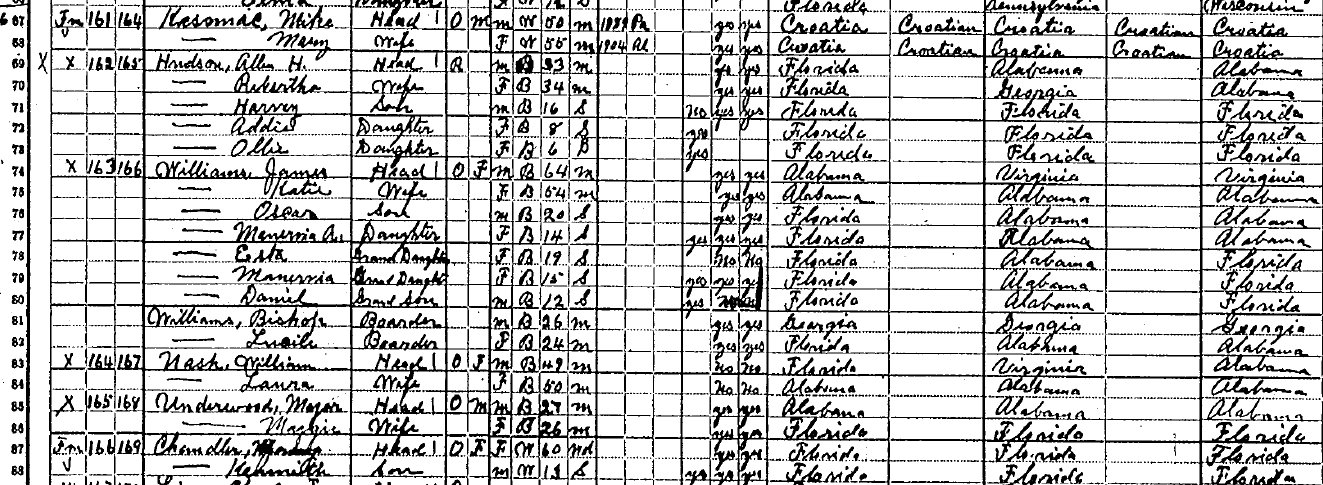 Florida Pennsylvania Wisconsin
67 Fm 161 164 Kesmac, Mike Head 1 O m m W 50 m 1889 Pa yes yes Croatia Croatian Croatia Croatian Croatia
68 — Mary Wife F W 55 m 1904 Al yes yes Croatia Croatian Croatia Croatian Croatia
69 X 162 165 Hudson, Allen H. Head 1 R m B 33 m yes yes Florida Alabama Alabama
70 — Wife F B 34 m yes yes Florida Georgia Alabama
71 — Harvey Son m B 16 S no yes yes Florida Florida Florida
72 — Addie Daughter F B 8 S yes Florida Florida Florida
73 — Ollie Daughter F B 6 S yes Florida Florida Florida
74 X 163 166 Williams, James Head 1 O F m B 64 m yes yes Alabama Virginia Virginia
75 — Katie Wife F B 54 m yes yes Alabama Alabama Alabama
76 — Oscar Son m B 20 S yes yes Florida Alabama Alabama
77 — Manervia A. Daughter F B 14 S yes yes yes Florida Alabama Alabama
78 — Esta Grand Daughter F B 19 S No No Florida Alabama Florida
79 — Manervia Grand Daughter F B 15 S yes yes yes Florida Alabama Florida
80 — Daniel Grand Son m B 12 S yes Florida Alabama Florida
81 Williams, Bishop Boarder m B 26 m yes yes Georgia Georgia Georgia
82 — Lucile Boarder F B 24 m yes yes Florida Alabama Alabama
83 X 164 167 Nash, William Head 1 O F m B 49 m No No Florida Virginia Alabama
84 — Laura Wife F B 50 m No No Alabama Alabama Alabama
85 X 165 168 Underwood, Major Head 1 O m m B 27 m yes yes Alabama Alabama Alabama
86 — Maggie Wife F B 26 m yes yes Florida Florida Florida
87 Fm 166 169 Chandler, Head 1 O F F W 60 Wd yes yes Florida Florida Florida
88 — Son m W 13 S yes yes yes Florida Florida Florida